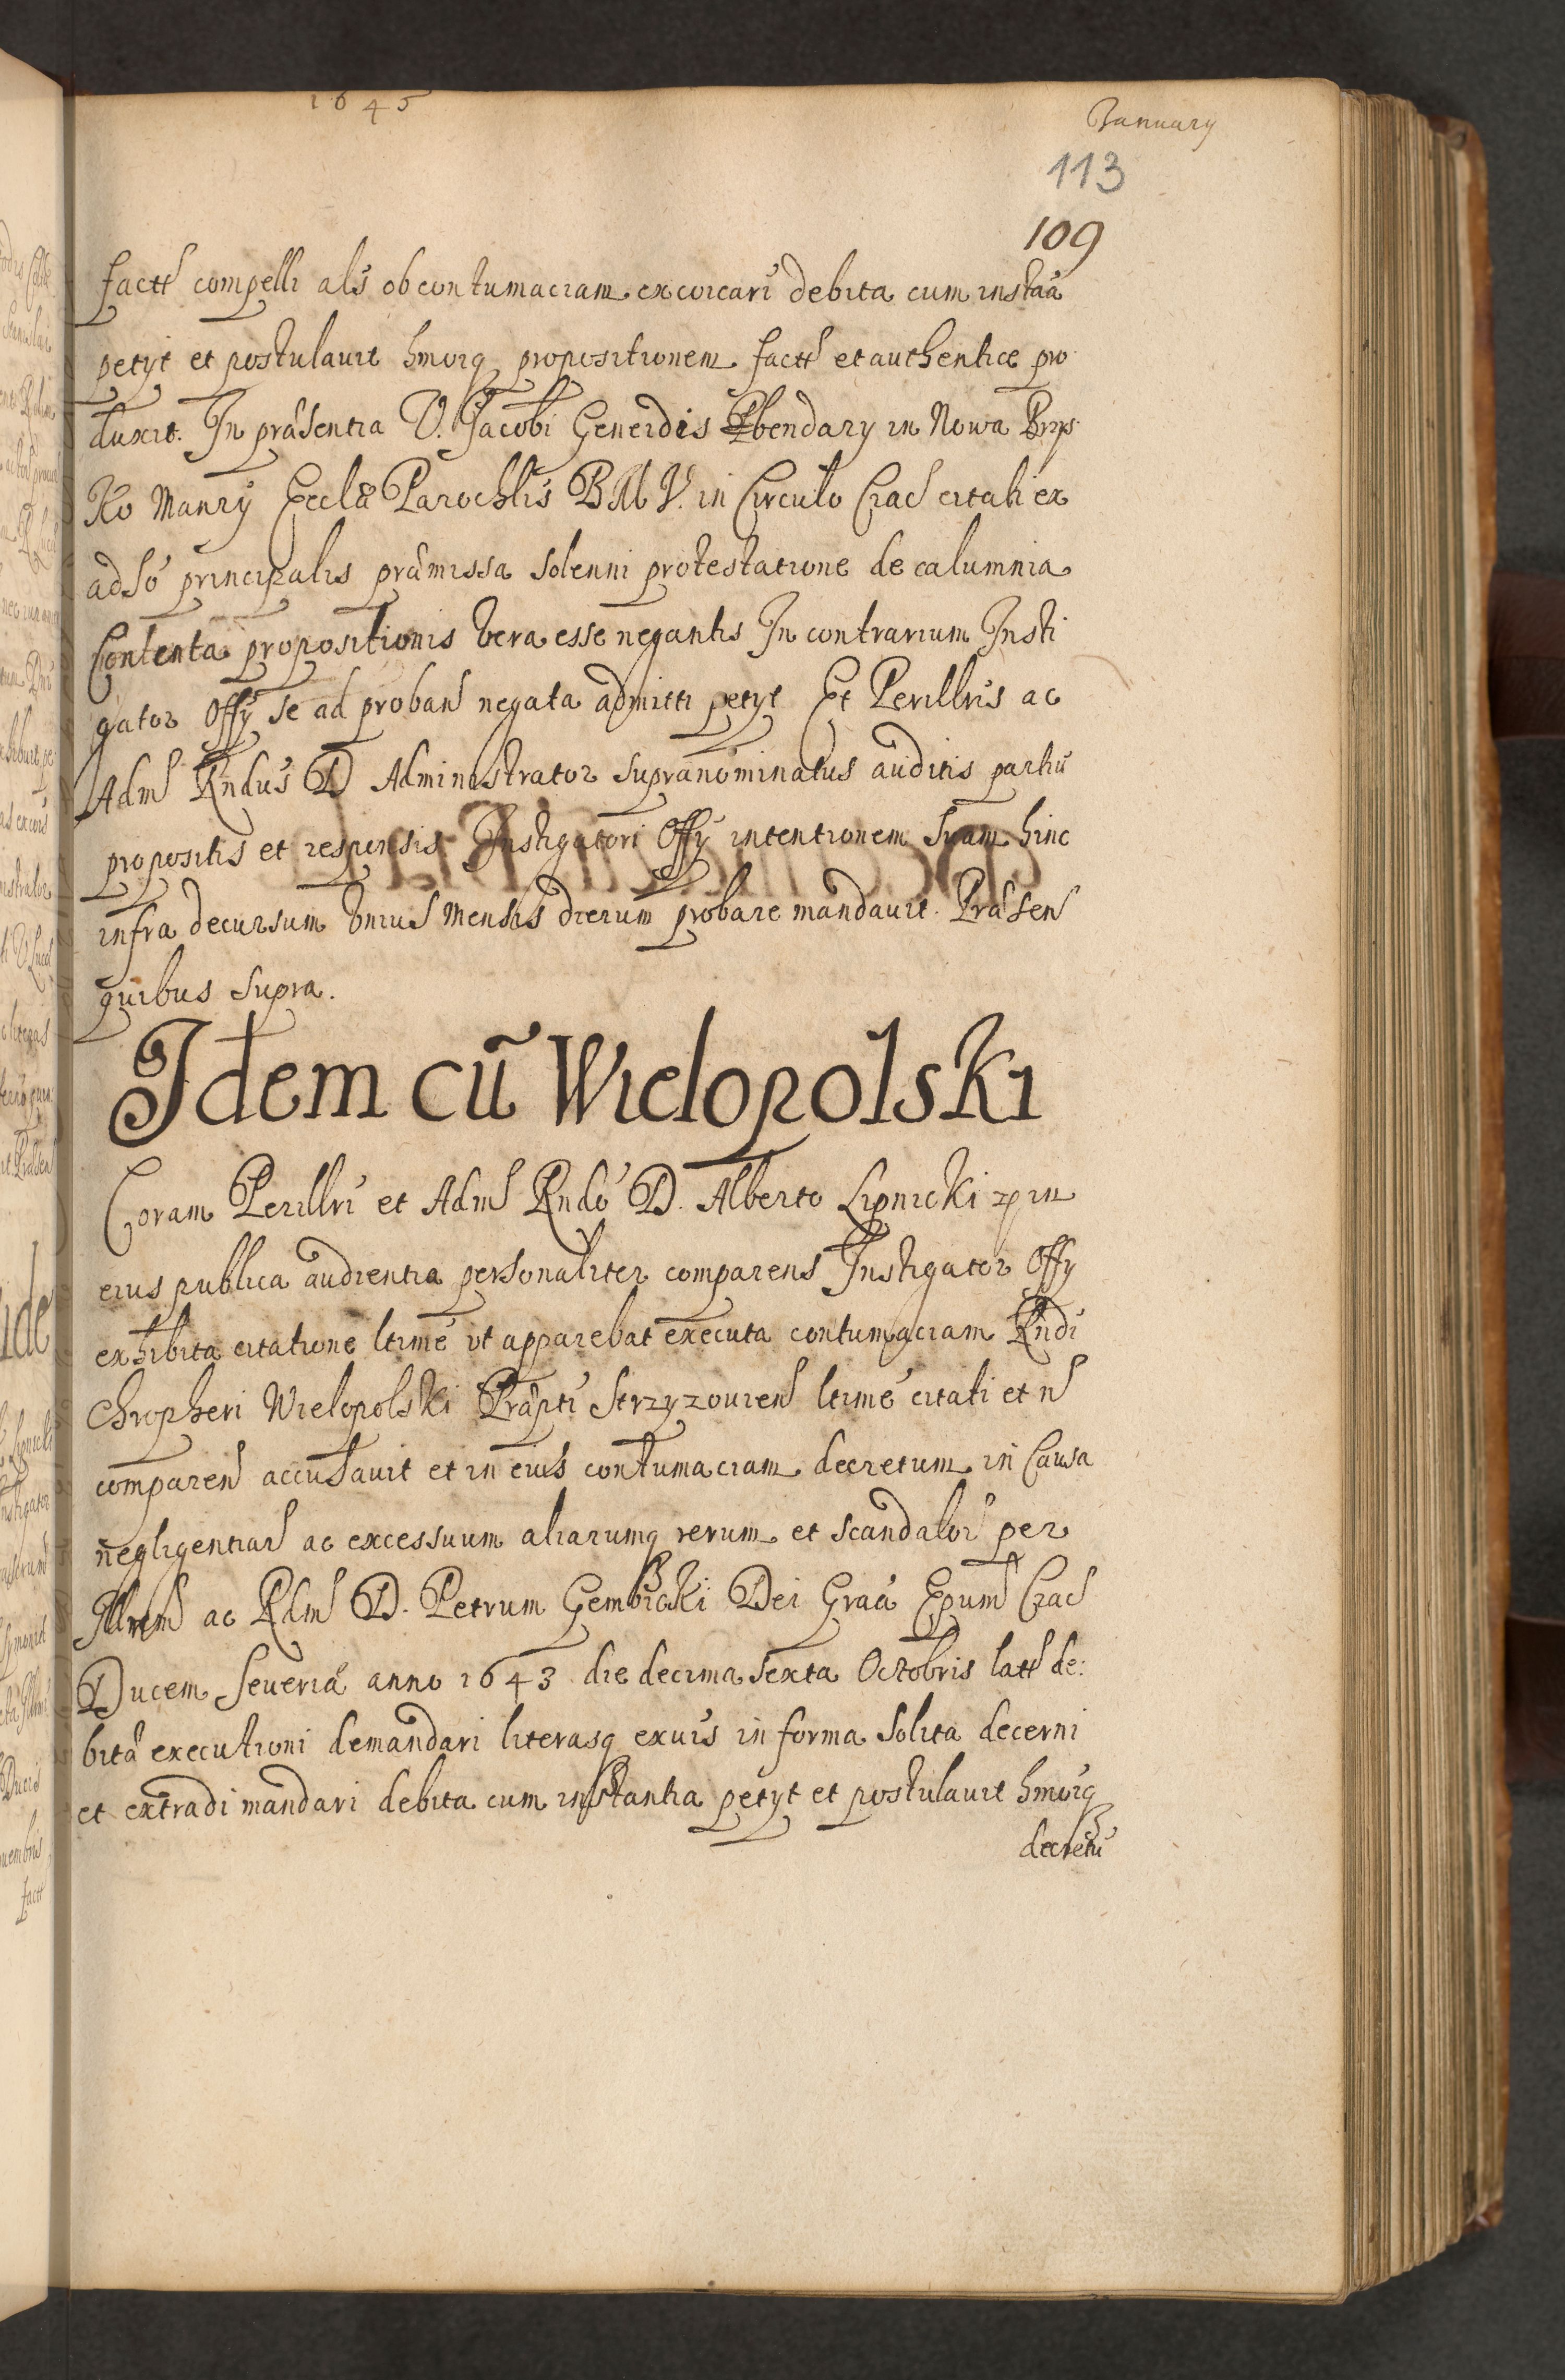 1645
January
113
109
factt compelli als ob contumaciam excoicari debita cum instaa
petyt et postulavit hmoiq propositionem factt et authentice pro
duxit. In præsentia V. Jacobi Generdis Pbendary in Nowa
Ko Manry Ecclæ Parochlis B M V. in Circulo Crac citati ex
adso principalis præmissa solenni protestatione de calumnia
Contenta propositionis vera esse negantis In contrarium Insti
gator Offy se ad proban negata admitti petyt Et Perillris ac
Adm Rndus D Administrator supranominatus auditis partiu
propositis et responsis Instigatori Offy intentionem suam hinc
infra decursum unius mensis dierum probare mandavit. Præsen
quibus supra.
Idem cu Wielopolski
Coram Perillri et Adm Rndo D. Alberto Lipnicki in
eius publica audientia personaliter comparens Instigator Offy
exhibita citatione ltime ut apparebat executa contumaciam Rndi
Chropheri Wielopolski Præpti Strzyzovien ltime citati et n
comparen accusavit et in eius contumaciam decretum in Causa
negligentiar ac excessuum aliarumq rerum et scandalor per
Illrem ac Rdm D. Petrum Gembicki Dei Graa Epum Crac
Ducem Severiæ anno 1643 die decima sexta Octobris latt de:
bitæ executioni demandari literasq exuis in forma solita decerni
et extradi mandari debita cum instantia petyt et postulavit hmoiq
decretu